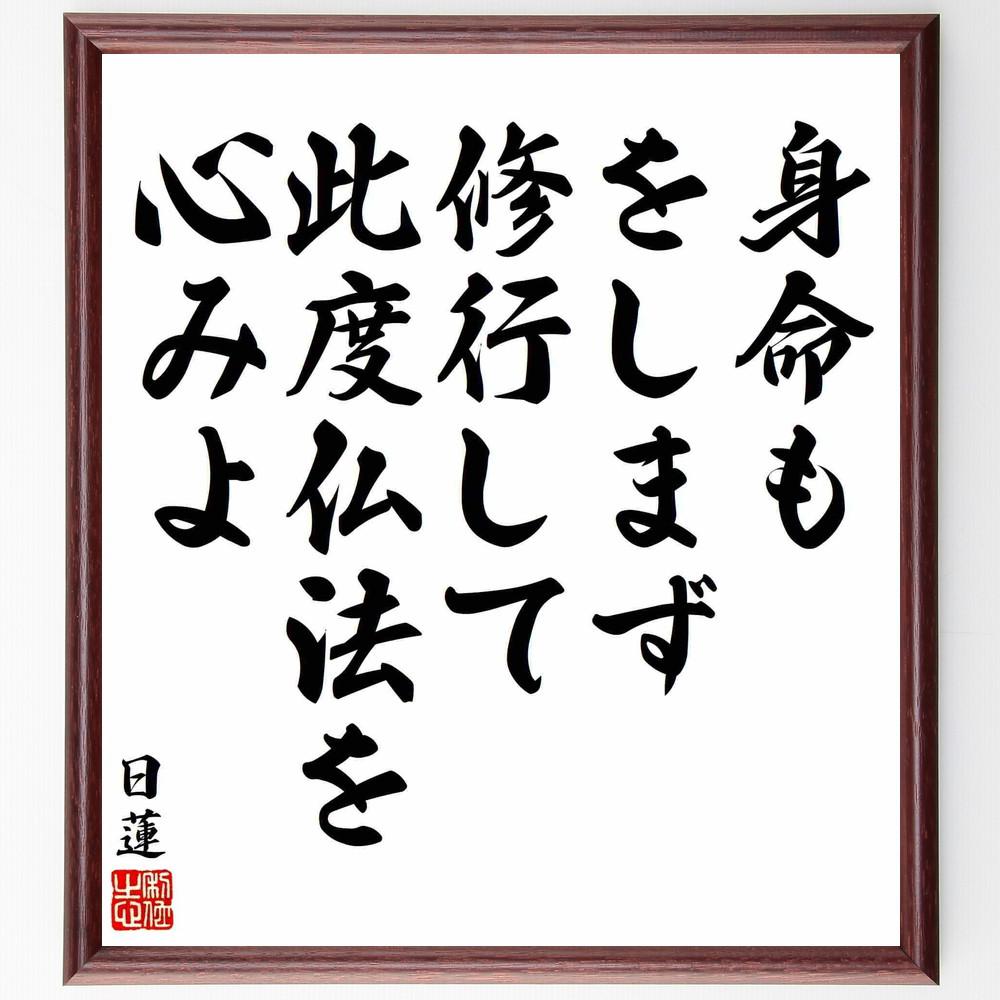 身命も
をしまず
修行して
此度仏法を
心みよ
日蓮